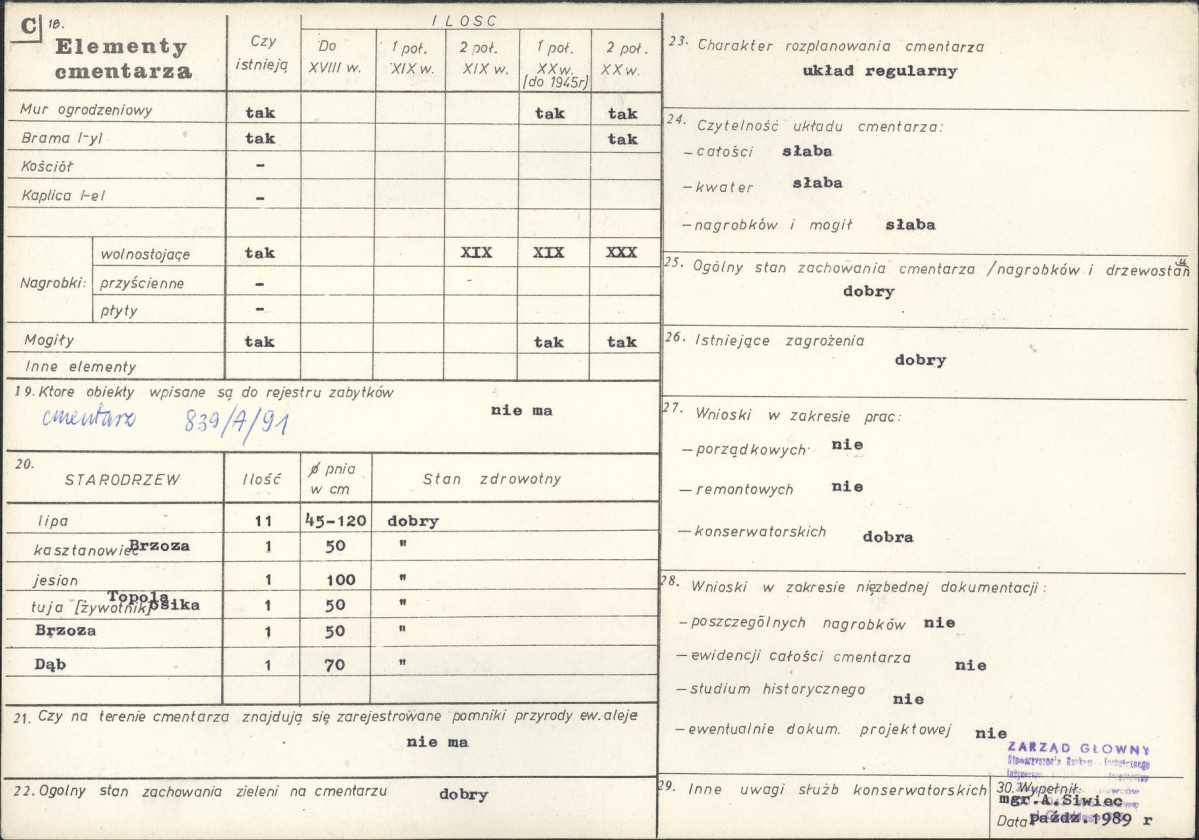 C 18.
Elementy cmentarza
Czy istnieją
ILOSC
Do XVIII w.
1 poł. XIX w.
2 poł. XIX w.
1 poł. XX w. (do 1945r)
2 poł. XX w.
Mur ogrodzeniowy tak tak tak
Brama l-yl tak tak
Kościół -
Kaplica l-el -
Nagrobki: wolnostojące tak XIX XIX XXX
przyścienne -
płyty -
Mogiły tak tak tak
Inne elementy
19. Ktore obiekty wpisane są do rejestru zabytków
nie ma
cmentarz 839/A/91
20. STARODRZEW Ilość ø pnia w cm Stan zdrowotny
lipa 11 45-120 dobry
kasztanowiec Brzoza 1 50 "
jesion 1 100 "
tuja [żywotnik] Topola osika 1 50 "
Brzoza 1 50 "
Dąb 1 70 "
21. Czy na terenie cmentarza znajdują się zarejestrowane pomniki przyrody ew. aleje
nie ma
22. Ogolny stan zachowania zieleni na cmentarzu dobry
23. Charakter rozplanowania cmentarza
układ regularny
24. Czytelność układu cmentarza:
-całości słaba
-kwater słaba
-nagrobków i mogił słaba
25. Ogólny stan zachowania cmentarza /nagrobków i drzewostanu
dobry
26. Istniejące zagrożenia
dobry
27. Wnioski w zakresie prac:
-porządkowych nie
-remontowych nie
-konserwatorskich dobra
28. Wnioski w zakresie niezbednej dokumentacji:
-poszczególnych nagrobków nie
-ewidencji całości cmentarza nie
-studium historycznego nie
-ewentualnie dokum. projektowej nie
ZARZĄD GŁOWNY
29. Inne uwagi służb konserwatorskich
30. Wypełnił:
mgr.A.Siwiec
Data: paźdz.1989 r